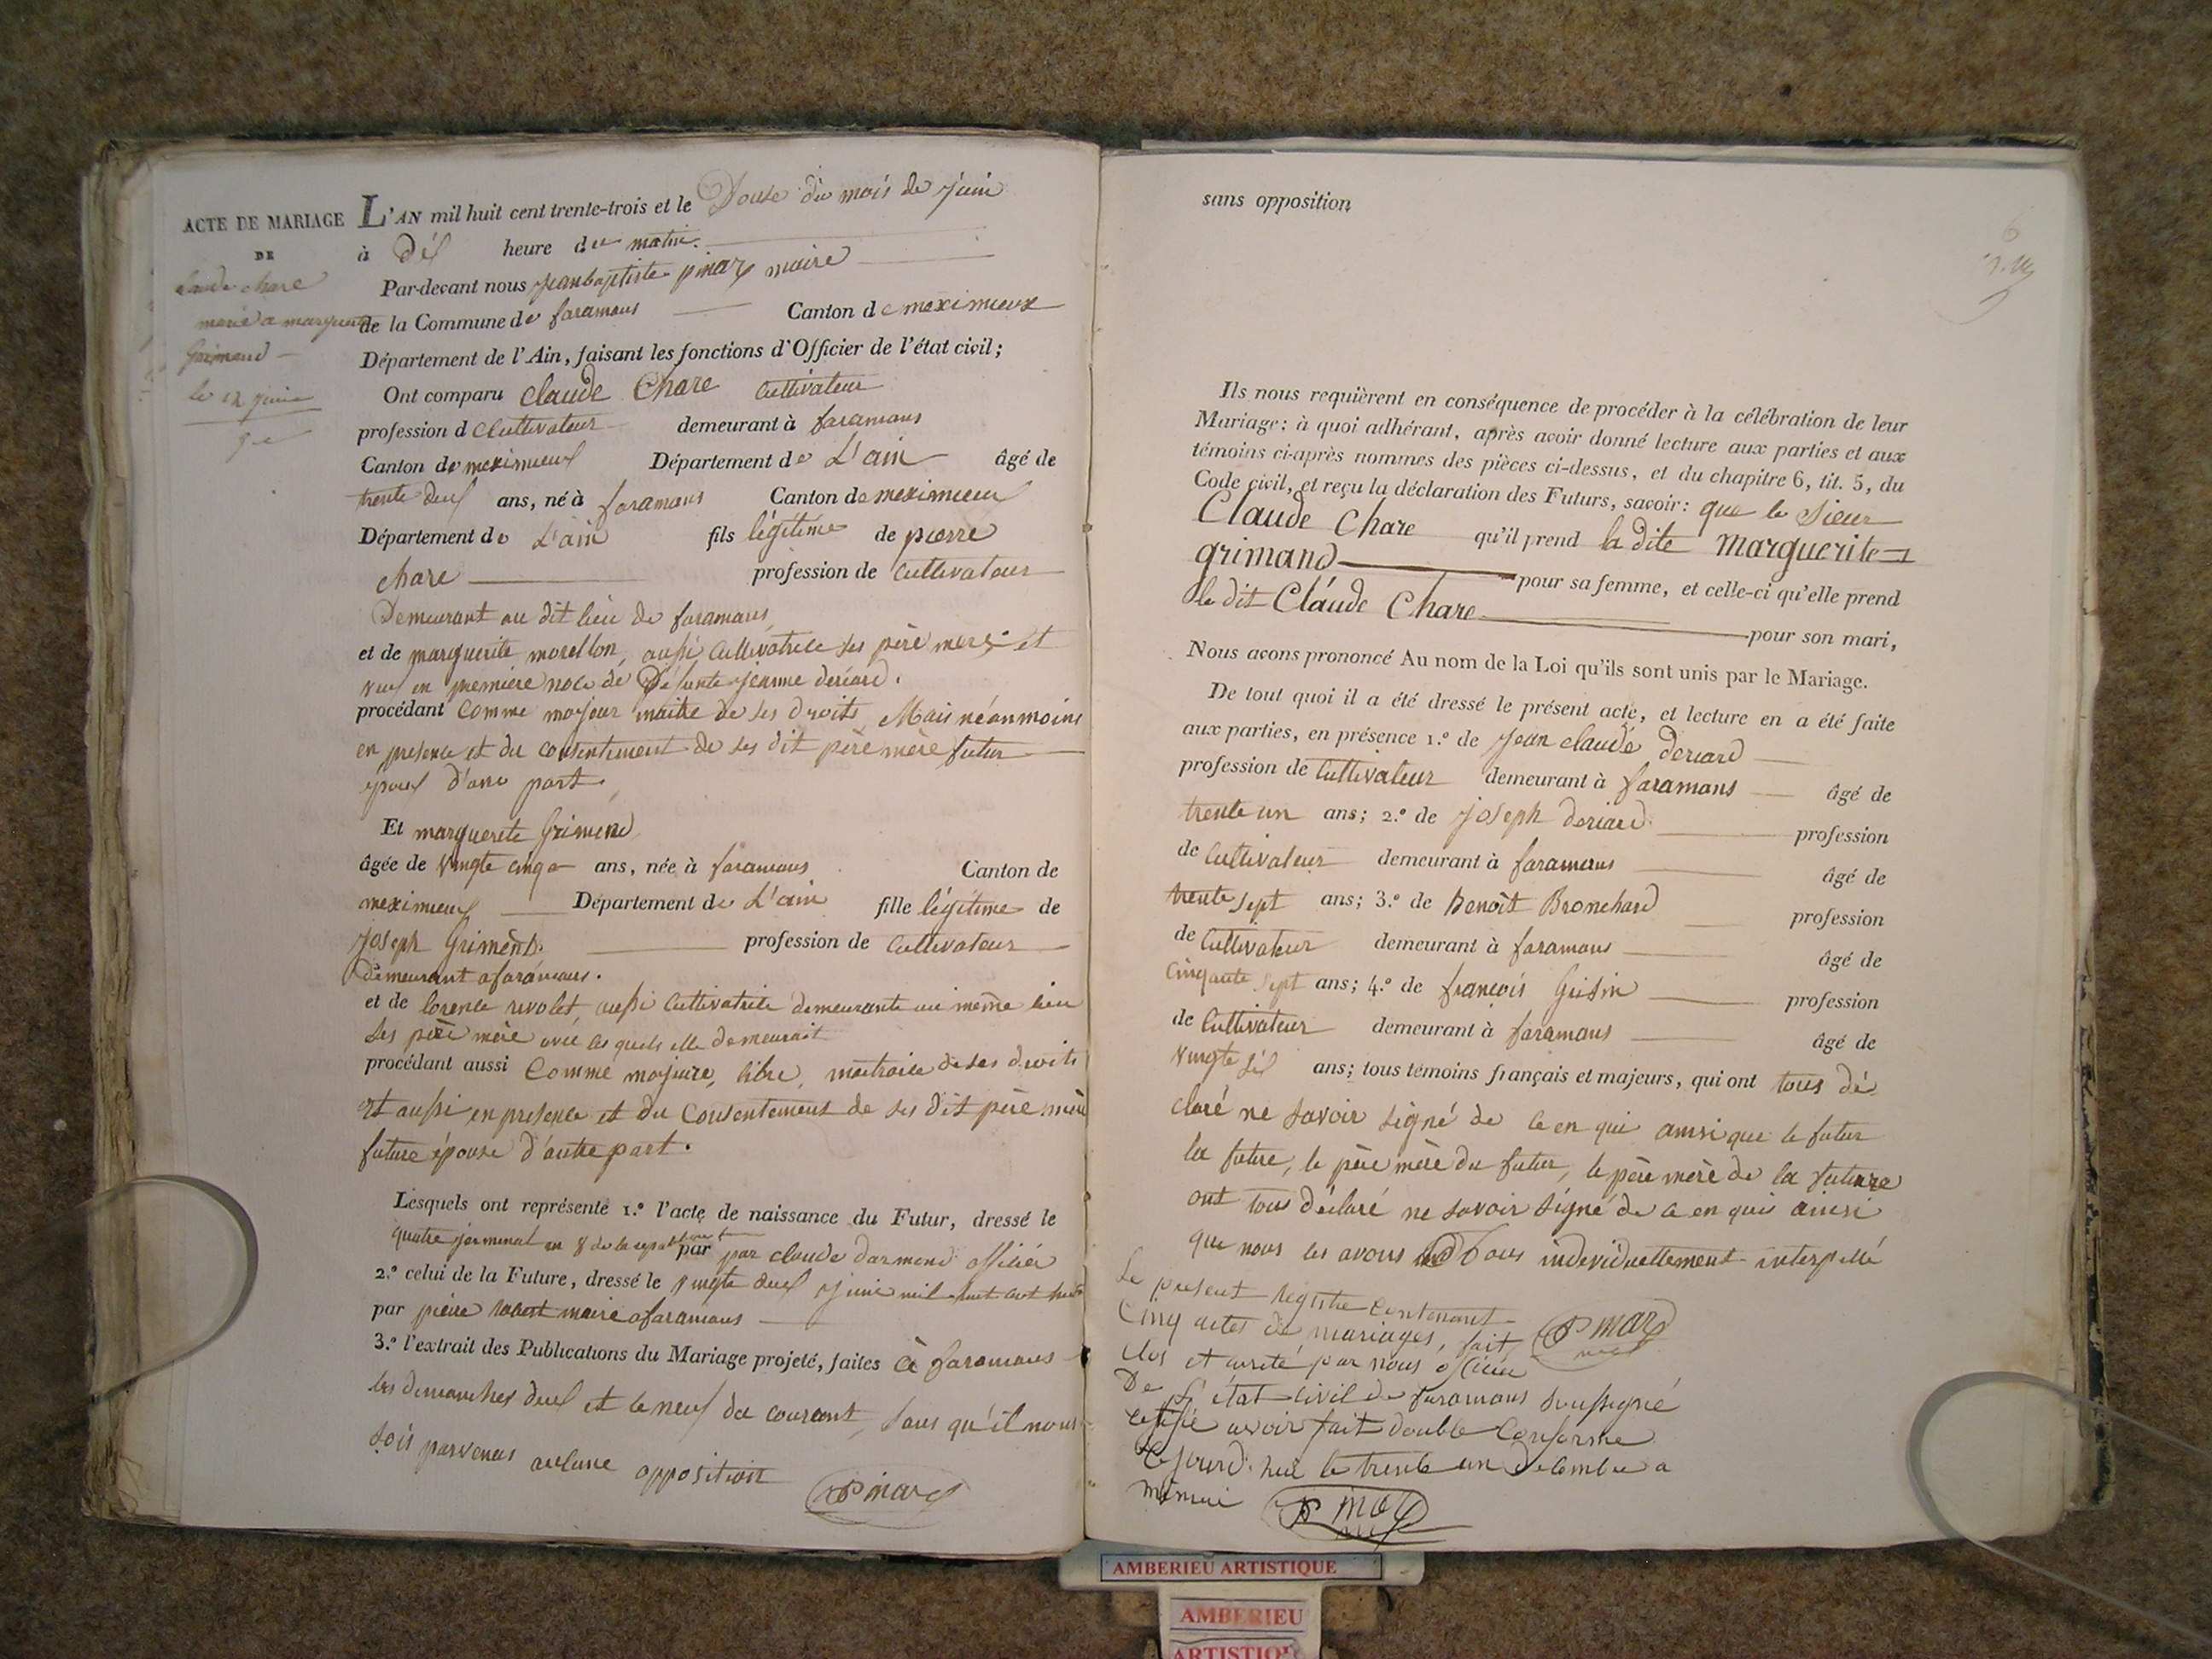 ACTE DE MARIAGE
DE
Claude chare
marié a marguerite
Grimand
le 12 juin
L'AN mil huit cent trente-trois et le Douse du mois de juin
à Dix heure du matin.
Par-devant nous jeanbaptiste pinaz maire
de la Commune de faramans Canton de meximieux
Département de l'Ain, faisant les fonctions d'Officier de l'état civil;
Ont comparu claude Chare Cultivateur
profession d Cultivateur demeurant à faramans
Canton de meximieux Département de L'ain âgé de
trente deux ans, né à faramans Canton de meximieux
Département de L'ain fils légitime de pierre
chare profession de Cultivateur
Demeurant au dit lieu de faramans
et de marguerite morellon, aussi Cultivatrice ses père mere et
veuf en première noce de Défunte jeanne dériard.
procédant Comme majeur maitre de ses droits Mais néanmoins
en presence et du consentement de ses dit père mère futur
époux d'une part.
Et marguerite Grimend
âgée de vingte cinqe ans, née à faramans Canton de
meximieux Département de L'ain fille légitime de
Joseph Grimend. profession de Cultivateur
Demeurant a faramans.
et de lorence rivolet, aussi Cultivatrice demeurante au meme lieu
ses père mère avec les quels elle demeurait
procédant aussi Comme majeure, libre, maitraise de ses droits
et aussi en presence et du Consentement de ses dit père mère
future épouse d'autre part.
Lesquels ont représenté 1.° l'acte de naissance du Futur, dressé le
quatre jerminal an 8 de la republique par par claude darmend officier
2.° celui de la Future, dressé le vingte deux juin mil huit cent huit
par pierre robert maire a faramans
3.° l'extrait des Publications du Mariage projeté, faites à faramans
les dimanches deux et le neuf du courant, sans qu'il nous
sois parvenus aucune opposition
Pinaz
sans opposition
6
Ils nous requièrent en conséquence de procéder à la célébration de leur
Mariage: à quoi adhérant, après avoir donné lecture aux parties et aux
témoins ci-après nommes des pièces ci-dessus, et du chapitre 6, tit. 5, du
Code civil, et reçu la déclaration des Futurs, savoir: que le Sieur
Claude Chare qu'il prend la dite Marguerite
grimand pour sa femme, et celle-ci qu'elle prend
le dit Claude Chare pour son mari,
Nous avons prononcé Au nom de la Loi qu'ils sont unis par le Mariage.
De tout quoi il a été dressé le présent acte, et lecture en a été faite
aux parties, en présence 1.° de jean claude deriard
profession de Cultivateur demeurant à faramans âgé de
trente un ans; 2.° de joseph deriard profession
de Cultivateur demeurant à faramans âgé de
trente sept ans; 3.° de Benoît Bronchard profession
de Cultivateur demeurant à faramans âgé de
Cinquante sept ans; 4.° de françois Grisin profession
de Cultivateur demeurant à faramans âgé de
vingte six ans; tous témoins français et majeurs, qui ont tous dé
claré ne savoir signé de ce en qui ainsi que le futur
la future, le père mère du futur, le père mère de la future
ont tous déclaré ne savoir signé de ce en quis ainsi
que nous les avons tous individuellement interpellé
Le présent registre Contenant
Cinq actes de mariages, fait Pinaz
clos et arreté par nous officier
De L'état civil de faramans soussigné
certifie avoir fait double conforme
Cejourd'hui le trente un decembre a
Pinaz
AMBERIEU ARTISTIQUE
AMBERIEU
ARTISTIQUE